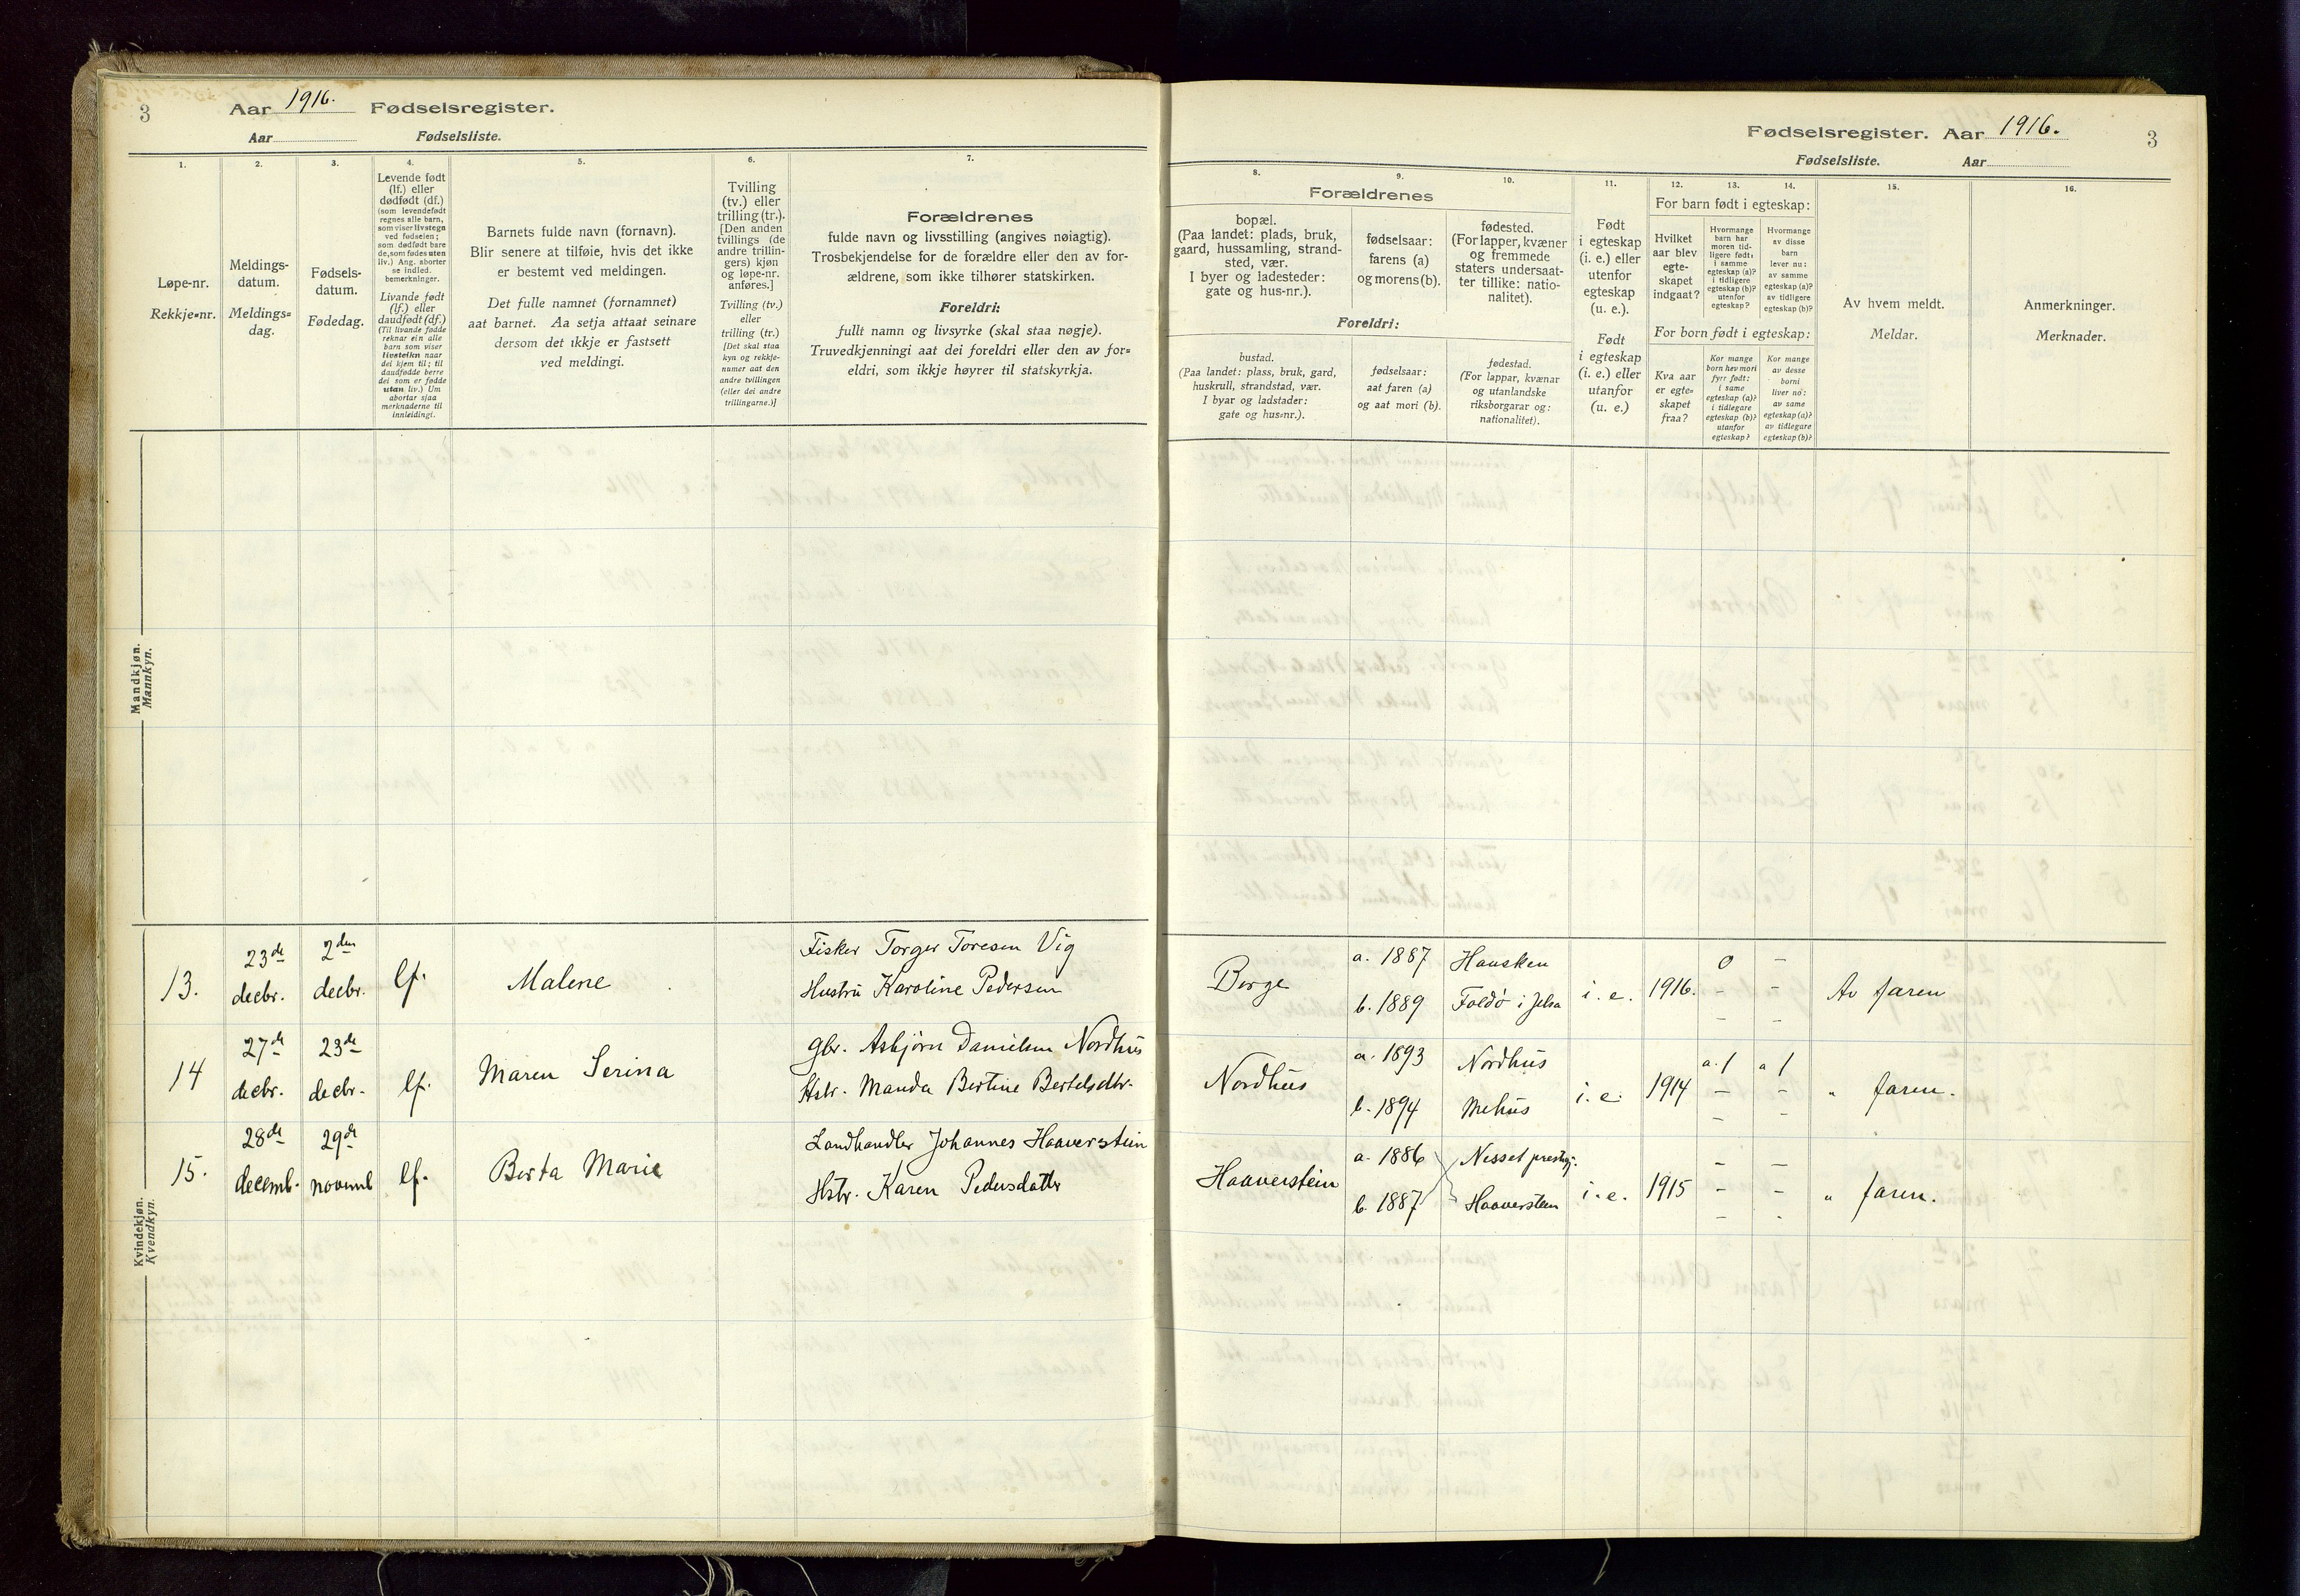 3
Aar 1916. Fødselsregister.
Aar Fødselsliste.
1.
Løpe-nr.
Rekkje-nr.
2.
Meldings-
datum.
Meldings-
dag.
3.
Fødsels-
datum.
Fødedag.
4.
Levende født
(lf.) eller
dødfødt (df.)
(som levendefødt
regnes alle barn,
som viser livstegn
ved fødselen;
som dødfødt bare
de, som fødes uten
liv.) Ang. aborter
se indled.
bemerkninger.
Livande født
(lf.) eller
daudfødt (df.)
(Til livande fødde
reknar ein alle
barn som viser
livsteikn naar
dei kjem til; til
daudfødde berre
dei som er fødde
utan liv.) Um
abortar sjaa
merknaderne til
innleidingi.
5.
Barnets fulde navn (fornavn).
Blir senere at tilføie, hvis det ikke
er bestemt ved meldingen.
Det fulle namnet (fornamnet)
aat barnet. Aa setja attaat seinare
dersom det ikkje er fastsett
ved meldingi.
6.
Tvilling
(tv.) eller
trilling (tr.).
[Den anden
tvillings (de
andre trillin-
gers) kjøn
og løpe-nr.
anføres.]
Tvilling (tv.)
eller
trilling (tr.)
[Det skal staa
kyn og rekkje-
numer aat den
andre tvillingen
(eller dei andre
trillingarne.)]
7.
Forældrenes
fulde navn og livsstilling (angives nøiagtig).
Trosbekjendelse for de forældre eller den av for-
ældrene, som ikke tilhører statskirken.
Foreldri:
fullt namn og livsyrke (skal staa nøgje).
Truvedkjenningi aat dei foreldri eller den av for-
eldri, som ikkje høyrer til statskyrkja.
Mandkjøn.
Mannkyn.
13.
23de
decbr.
2den
decbr.
lf.
Malene
Fisker Torger Toresen Vig
Hustru Karoline Pedersen
14
27de
decbr.
23de
decbr.
lf.
Maren Serina
Gbr. Asbjørn Danielsen Nordhus
Hstr. Manda Bertine Bertelsdtr.
15.
28de
decemb.
29de
novemb
lf.
Berta Marie
Landhandler Johannes Haaverstein
Hstr. Karen Pedersdatter
Kvindekjøn.
Kvendkyn.
Fødselsregister. Aar 1916.
3
Fødselsliste. Aar
8.
Forældrenes
bopæl.
(Paa landet: plads, bruk,
gaard, hussamling, strand-
sted, vær.
I byer og ladesteder:
gate og hus-nr.).
9.
fødselsaar:
farens (a)
og morens (b).
10.
fødested.
(For lapper, kvæner
og fremmede
staters undersaat-
ter tillike: natio-
nalitet).
Foreldri:
bustad.
(Paa landet: plass, bruk, gard,
huskrull, strandstad, vær.
I byar og ladstader:
gate og hus-nr.).
fødselsaar:
aat faren (a)
og aat mori (b).
fødestad.
(For lappar, kvænar
og utanlandske
riksborgarar og:
nationalitet).
11.
Født
i egteskap
(i. e.) eller
utenfor
egteskap
(u. e.).
Født
i egteskap
(i. e.) eller
utanfor
(u. e.)
12.
13.
14.
For barn født i egteskap:
Hvilket
aar blev
egte-
skapet
indgaat?
Hvormange
barn har
moren tid-
ligere født:
i samme
egteskap (a)?
i tidligere
egteskap (b)?
utenfor
egteskap?
Hvormange
av disse
barn
lever nu:
av samme
egteskap (a)?
av tidligere
egteskap (b)?
For born født i egteskap:
Kva aar
er egte-
skapet
fraa?
Kor mange
born hev mori
fyrr født:
i same
egteskap (a)?
i tidlegare
egteskap (b)?
utanfor
egteskap?
Kor mange
av desse
borni
liver no:
av same
egteskap (a)?
av tidlegare
egteskap (b)?
15.
Av hvem meldt.
Meldar.
16.
Anmerkninger.
Merknader.
Berge
a. 1887
b. 1889
Hausken
Foldø i Jelsa
i. e.
1916.
0 -
- -
- -
Av faren
Nordhus
a. 1893
b. 1894
Nordhus
Mehus
i. e.
1914
a. 1 a 1
- -
- -
" faren.
Haaverstein
a. 1886
b. 1887
Nesset prestegj.
Haaverstein
i. e.
1915
- -
- -
- -
" faren.